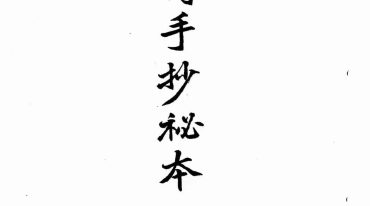 手抄秘本